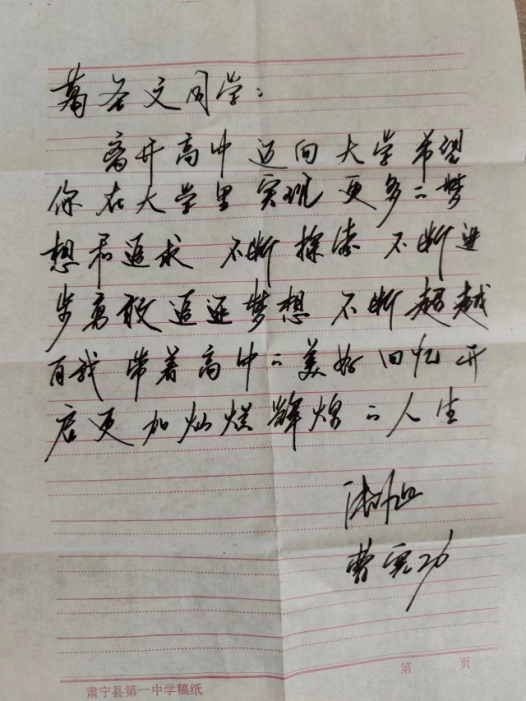 葛圣文同学：
离开高中 迈向 大学 希望
你在大学里 实现 更多的梦
想和追求 不断 探索 不断进
步勇敢追逐梦想 不断超越
自我 带着高中的美好回忆 开
启更加灿烂辉煌的人生
曹
肃宁县第一中学稿纸
第 页